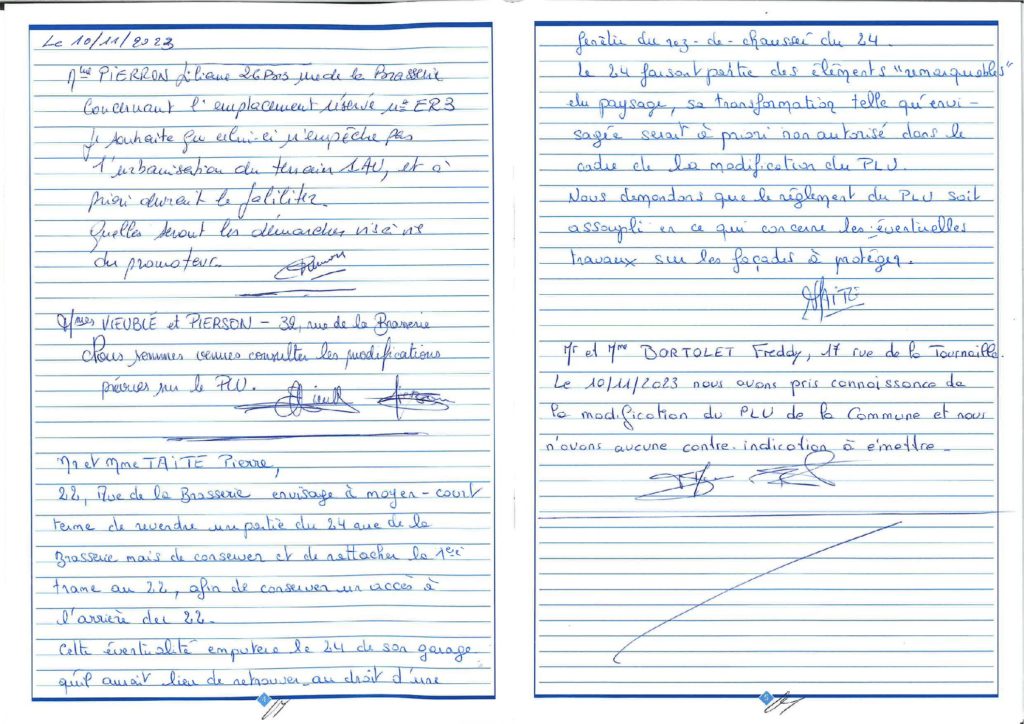 Le 10/11/2023
Mme PIERRON Liliane 26 Bis rue de la Brasserie
Concernant l'emplacement réservé n° ER3
Je souhaite que celui-ci n'empêche pas
l'urbanisation du terrain 1AU, et à
priori devrait le faciliter.
Quelles seront les démarches vis à vis
du promoteur.
Mmes VIEUBLÉ et PIERSON - 32, rue de la Brasserie
Nous sommes venues consulter les modifications
prévues sur le PLU.
Mr et Mme TAITE Pierre,
22, Rue de la Brasserie envisage à moyen-court
terme de revendre un partie du 24 rue de la
Brasserie mais de conserver et de rattacher la 1ère
trame au 22, afin de conserver un accès à
l'arrière du 22.
Cette éventualité emputera le 24 de son garage
qu'il aurait lieu de retrouver au droit d'une
fenêtre du rez-de-chaussé du 24.
Le 24 faisant partie des éléments "remarquables"
du paysage, sa transformation telle qu'envi-
sagée serait à priori non autorisé dans le
cadre de la modification du PLU.
Nous demandons que le règlement du PLU soit
assoupli en ce qui concerne les éventuelles
travaux sur les façades à protéger.
TAITE
Mr et Mme BORTOLET Freddy, 17 rue de la Tournaille.
Le 10/11/2023 nous avons pris connaissance de
la modification du PLU de la Commune et nous
n'avons aucune contre-indication à émettre.